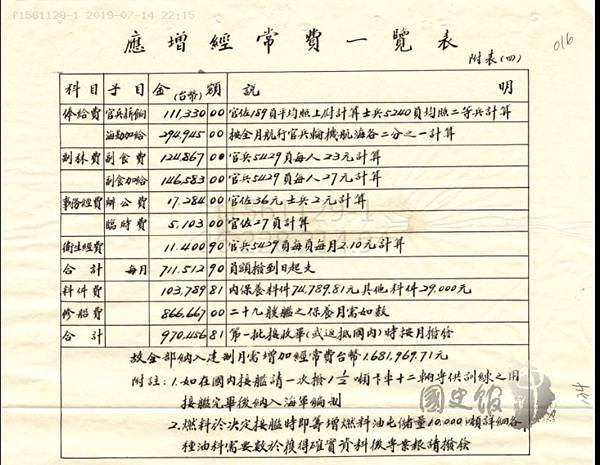 F1561129-1 2019-07-14 22:15
應增經常費一覽表
016
附表(四)
科目 子目 金(台幣)額 說明
俸給費 官兵薪餉 111,330 00 官佐189員平均照上尉計算士兵5240員均照二等兵計算
海勤加給 294,945 00 按全月航行官兵輪機航海各二分之一計算
副秣費 副食費 124,867 00 官兵5429員每人23元計算
副食加給 146,583 00 官兵5429員每人27元計算
事務經費 辦公費 17.284 00 官佐36元士兵2元計算
臨時費 5,103 00 官佐27員計算
衛生經費 11.400 90 官兵5429員每員每月2.10元計算
合計 每月 711.512 90 員額撥到日起支
料件費 103,789 81 內保養料件74,789.81元其他料件29,000元
修船費 866,667 00 二十九艘艦之保養月需如數
合計 970,456 81 第一批接收畢(或返抵國內)時按月撥發
故全部納入建制月需增加經常費台幣1.681,969.71元
附註:1.如在國內接艦請一次撥1½噸卡車十二輛專供訓練之用
接艦完畢後納入海軍編制
2.燃料於決定接艦時即籌增燃料油屯儲量10.000噸詳細各
種油料需要數於獲得確實資料後專案報請撥發
國史館